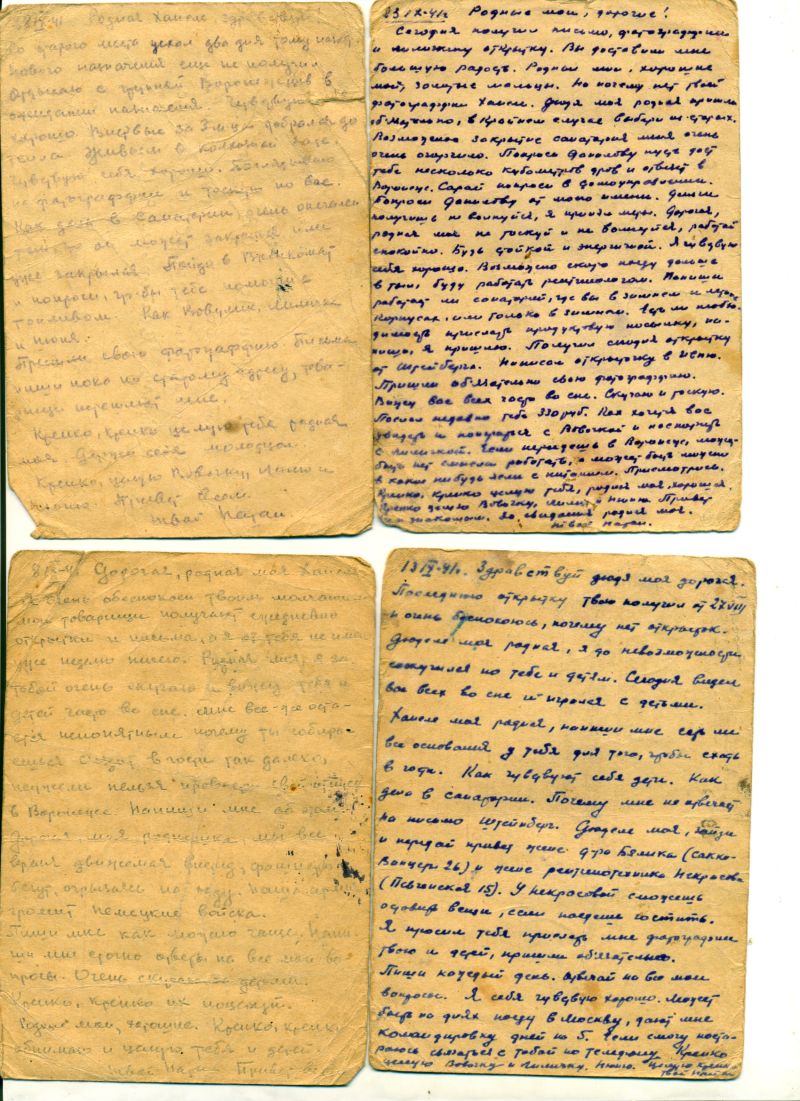 Родная Ханеле, здравствуй!
Со старого места уехал два дня тому назад.
Нового назначения еще не получил
Отдыхаю с группой в
ожидании назначения. Чувствую себя
хорошо. Впервые за 3 м-ца добрался до
тепла. Живем в колхозной хате.
Чувствую себя хорошо. Поглядываю
на фотографии и тоскую по вас.
Как дела в санатории, очень опечален
тем что он может закрыться или
уже закрылся. Пойди в Военкомат
и попроси, чтобы тебе помогли с
топливом. Как Вовулик, Лиличка
и нюня.
Пришли свою фотографию. Письма
пиши пока по старому адресу, това-
рищи перешлют мне.
Крепко, крепко целую тебя родная
моя. Держи себя молодцом.
Крепко, целую Вовочку, и
нюню. Привет всем.
твой Натан.
23 IX-41г. Родные мои, дорогие!
Сегодня получил письмо, фотографии
и лиличкину открытку. Вы доставили мне
большую радость. Родные мои, хорошие
мои, золотые мальцы. Но почему нет твоей
фотографии Ханеле. Дюдя моя родная пришли
обязательно, в крайнем случае выбери из старых.
Возможное закрытие санатория меня очень
очень огорчило. Попроси Данилову пусть даст
тебе несколько кубометров дров и отвезет в
Воронеж. Сарай попроси в домоуправлении.
Попроси Данилову от моего имени. Деньги
получишь не волнуйся, я приму меры. Дорогая,
родная моя не тоскуй и не волнуйся, работай
спокойно. Будь стойкой и энергичной. Я чувствую
себя хорошо. Возможно скоро поеду дальше
в тыл, буду работать рентгенологом. Напиши
работает ли санаторий, где вы в зимнем и летнем
корпусах, или только в зимнем. Есть ли необхо-
димость прислать продуктовую посылку, на-
пиши, я пришлю. Получил сегодня открытку
от Штейнберга. Написал открыточку в Ивню.
Пришли обязательно свою фотографию.
Вижу вас всех часто во сне. Скучаю и тоскую.
Послал недавно тебе 330 руб. Как хочется вас
увидеть и поиграть с Вовочкой и поспорить
с Лиличкой. Если переедешь в Воронеж, может
быть нет смысла работать, а может быть лучше
в каком нибудь яслях с питанием. Присмотрись.
Крепко, крепко целую тебя, родная моя, хорошая.
Крепко целую Вовочку, Лилит и нюню. Привет
знакомым. До свидания родная моя.
твой Натан.
Дорогая, родная моя Ханеле
Я очень обеспокоен твоим молчанием
мои товарищи получают ежедневно
открытки и письма, а я от тебя не имею
уже неделю ничего. Родная моя, я за
тобой очень скучаю и вижу тебя и
детей часто во сне. Мне все-же оста-
ется непонятным почему ты собира-
ешься ехать в гости так далеко,
неужели нельзя провести свой отпуск
в Воронеже. Напиши мне об этом.
Дорогая, моя родненькая, мы все
время движемся вперед, фашисты
бегут, огрызаясь на ходу. Наша армия
громит немецкие войска.
Пиши мне как можно чаще. Напи-
ши мне срочно ответы на все мои во-
просы. Очень скучаю за детьми.
Крепко, крепко их поцелуй.
Родные мои, хорошие. Крепко, крепко
обнимаю и целую тебя и детей.
твой Натан Привет
13 IX-41г. Здравствуй дюдя моя дорогая.
Последнюю открытку твою получил от 27 VIII
и очень беспокоюсь, почему нет открыток.
Дюделе моя родная, я до невозможности
соскучился по тебе и детям. Сегодня видел
вас всех во сне и игрался с детьми.
Ханеле моя родная, напиши мне есть ли
все основания у тебя для того, чтобы ехать
в гости. Как чувствуют себя дети. Как
дела в санатории. Почему мне не отвечает
на письмо Штейнберг. Дюделе моя, зайди
и передай привет жене д-ра Бялика (Сакко-
Ванцети 26) и жене рентгенотехника Некрасова
15). У Некрасовой сможешь
оставить вещи, если поедешь гостить.
Я просил тебя прислать мне фотографии
твою и детей, пришли обязательно.
Пиши каждый день. Отвечай на все мои
вопросы. Я себя чувствую хорошо. Может
быть на днях поеду в Москву, дают мне
командировку дней на 5. Если смогу поста-
раюсь связаться с тобой по телефону. Крепко
целую Вовочку и Лиличку. Нюню. Целую крепко
твой Натан